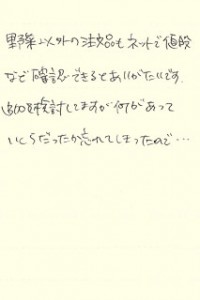 野菜以外の注文品もネットで値段
など確認できるとありがたいです。
追加を検討してますが何があって
いくらだったか忘れてしまったので…